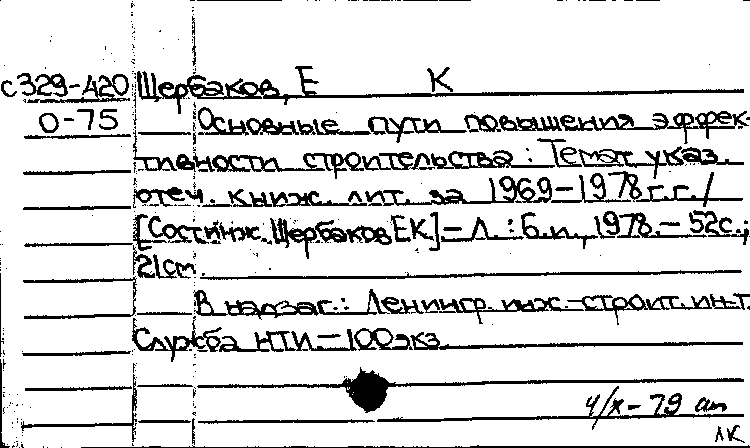 с329-А20 Щербаков, Е К
О-75 Основные пути повышения эффек-
тивности строительства : Темат. указ.
отеч. книж. лит. за 1969-1978 г.г. /
[Сост. инж. Щербаков Е.К.] – Л. : Б.и., 1978. – 52с.;
21 cm.
В надзаг.: Ленингр. инж.-строит. ин-т.
Служба НТИ. – 100 экз.
4/X-79
ЛК